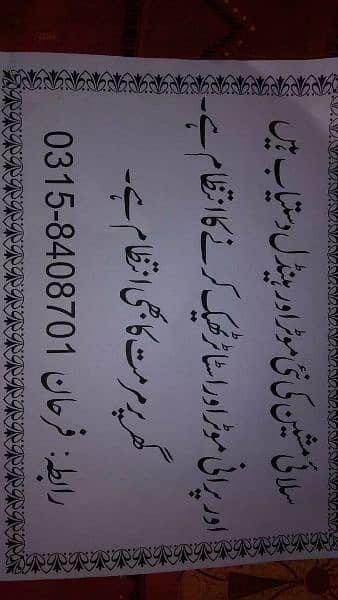 سلائی مشین کی نئی موٹر اور ہینڈل دستیاب ہیں
اور پرانی موٹر اور اسٹاٹر ٹھیک کرنے کا انتظام ہے۔
گھر پر مرمت کا بھی انتظام ہے۔
رابطہ: فرحان 0315-8408701